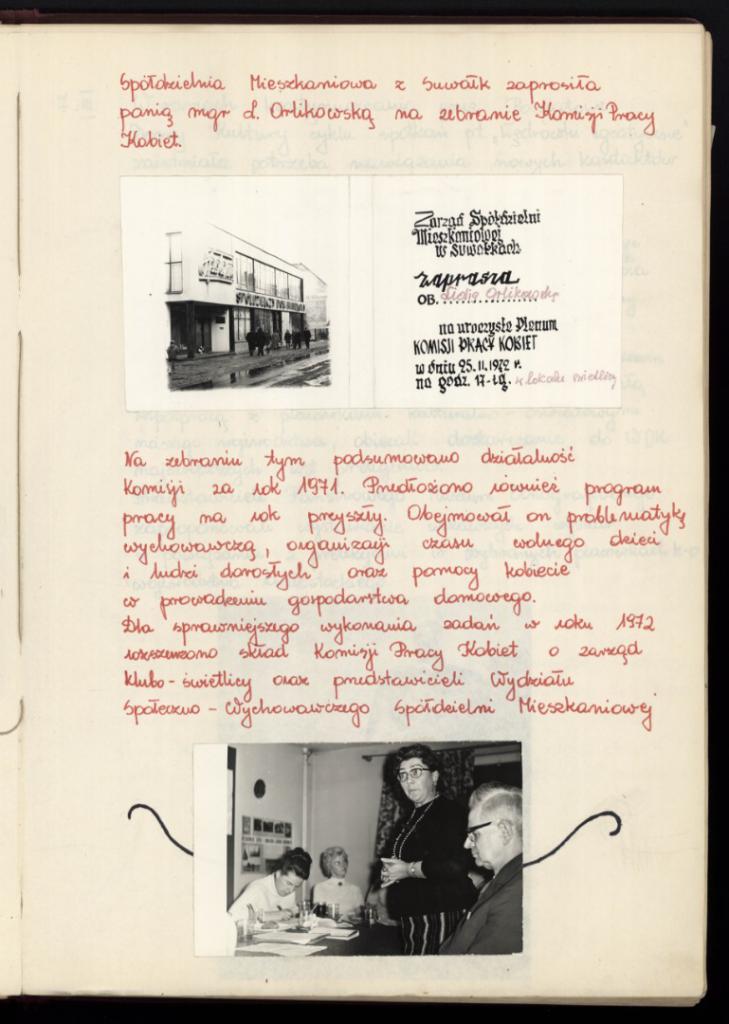 Spółdzielnia Mieszkaniowa z Suwałk zaprosiła
panią mgr L. Orlikowską na zebranie Komisji Pracy
Kobiet.
Zarząd Spółdzielni
Mieszkaniowej
w Suwałkach
zaprasza
OB. Lidię Orlikowską
na uroczyste Plenum
KOMISJI PRACY KOBIET
w dniu 25.II.1972 r.
na godz. 17-tą. w lokalu świetlicy
Na zebraniu tym podsumowano działalność
Komisji za rok 1971. Przedłożono również program
pracy na rok przyszły. Obejmował on problematykę
wychowawczą, organizacji czasu wolnego dzieci
i ludzi dorosłych oraz pomocy kobiecie
w prowadzeniu gospodarstwa domowego.
Dla sprawniejszego wykonania zadań w roku 1972
rozszerzono skład Komisji Pracy Kobiet o zarząd
klubo-świetlicy oraz przedstawicieli Wydziału
Społeczno-Wychowawczego Spółdzielni Mieszkaniowej